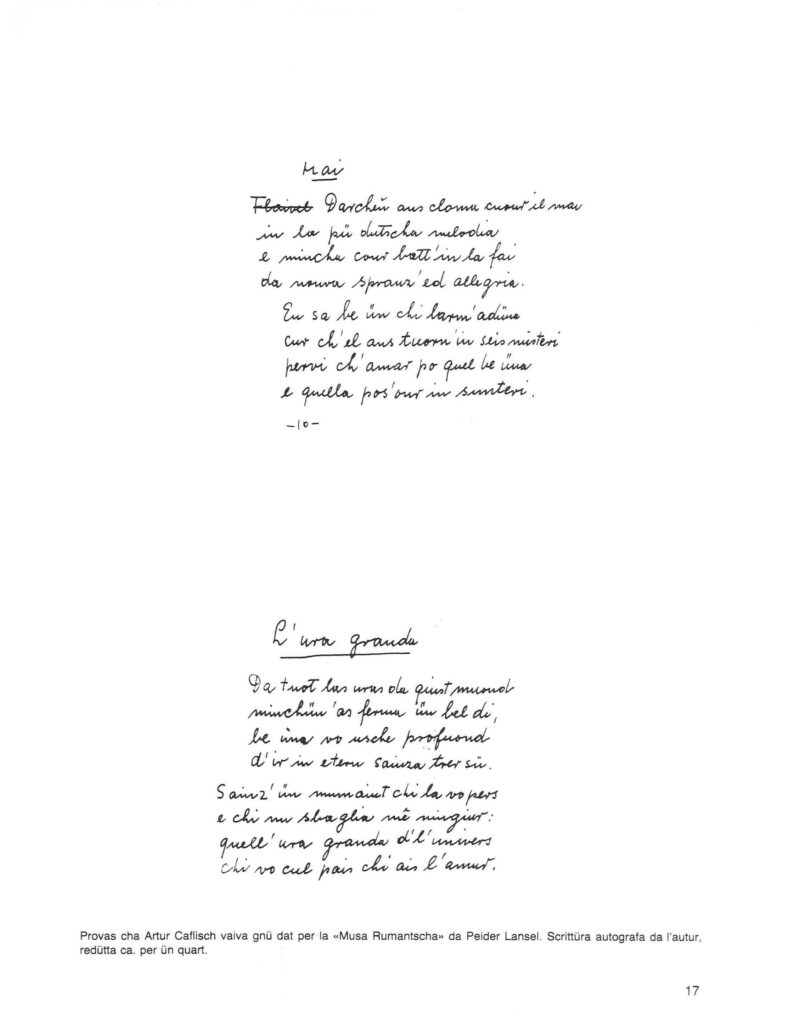 Mai
Darcheu ans cloma cuour il mai
in la pü dutscha melodia
e mincha cour batt'in la fai
da nouva spranz'ed allegria.
Eu sa be ün chi larm'adüna
cur ch'el ans tuorn'in seis misteri
pervi ch'amar po quel be üna
e quella pos'our in sunteri.
–10–
L'ura granda
Da tuot las uras da quist muond
minchün'as ferma ün bel di,
be üna vo usche profuond
d'ir in etern sainza trer sü.
Sainz'ün mumaint chi la vo pers
e chi nu sbaglia mê ningiur:
quell'ura granda d'l'univers
chi vo cul pais chi ais l'amur.
Provas cha Artur Caflisch vaiva gnü dat per la «Musa Rumantscha» da Peider Lansel. Scrittüra autografa da l'autur,
redütta ca. per ün quart.
17